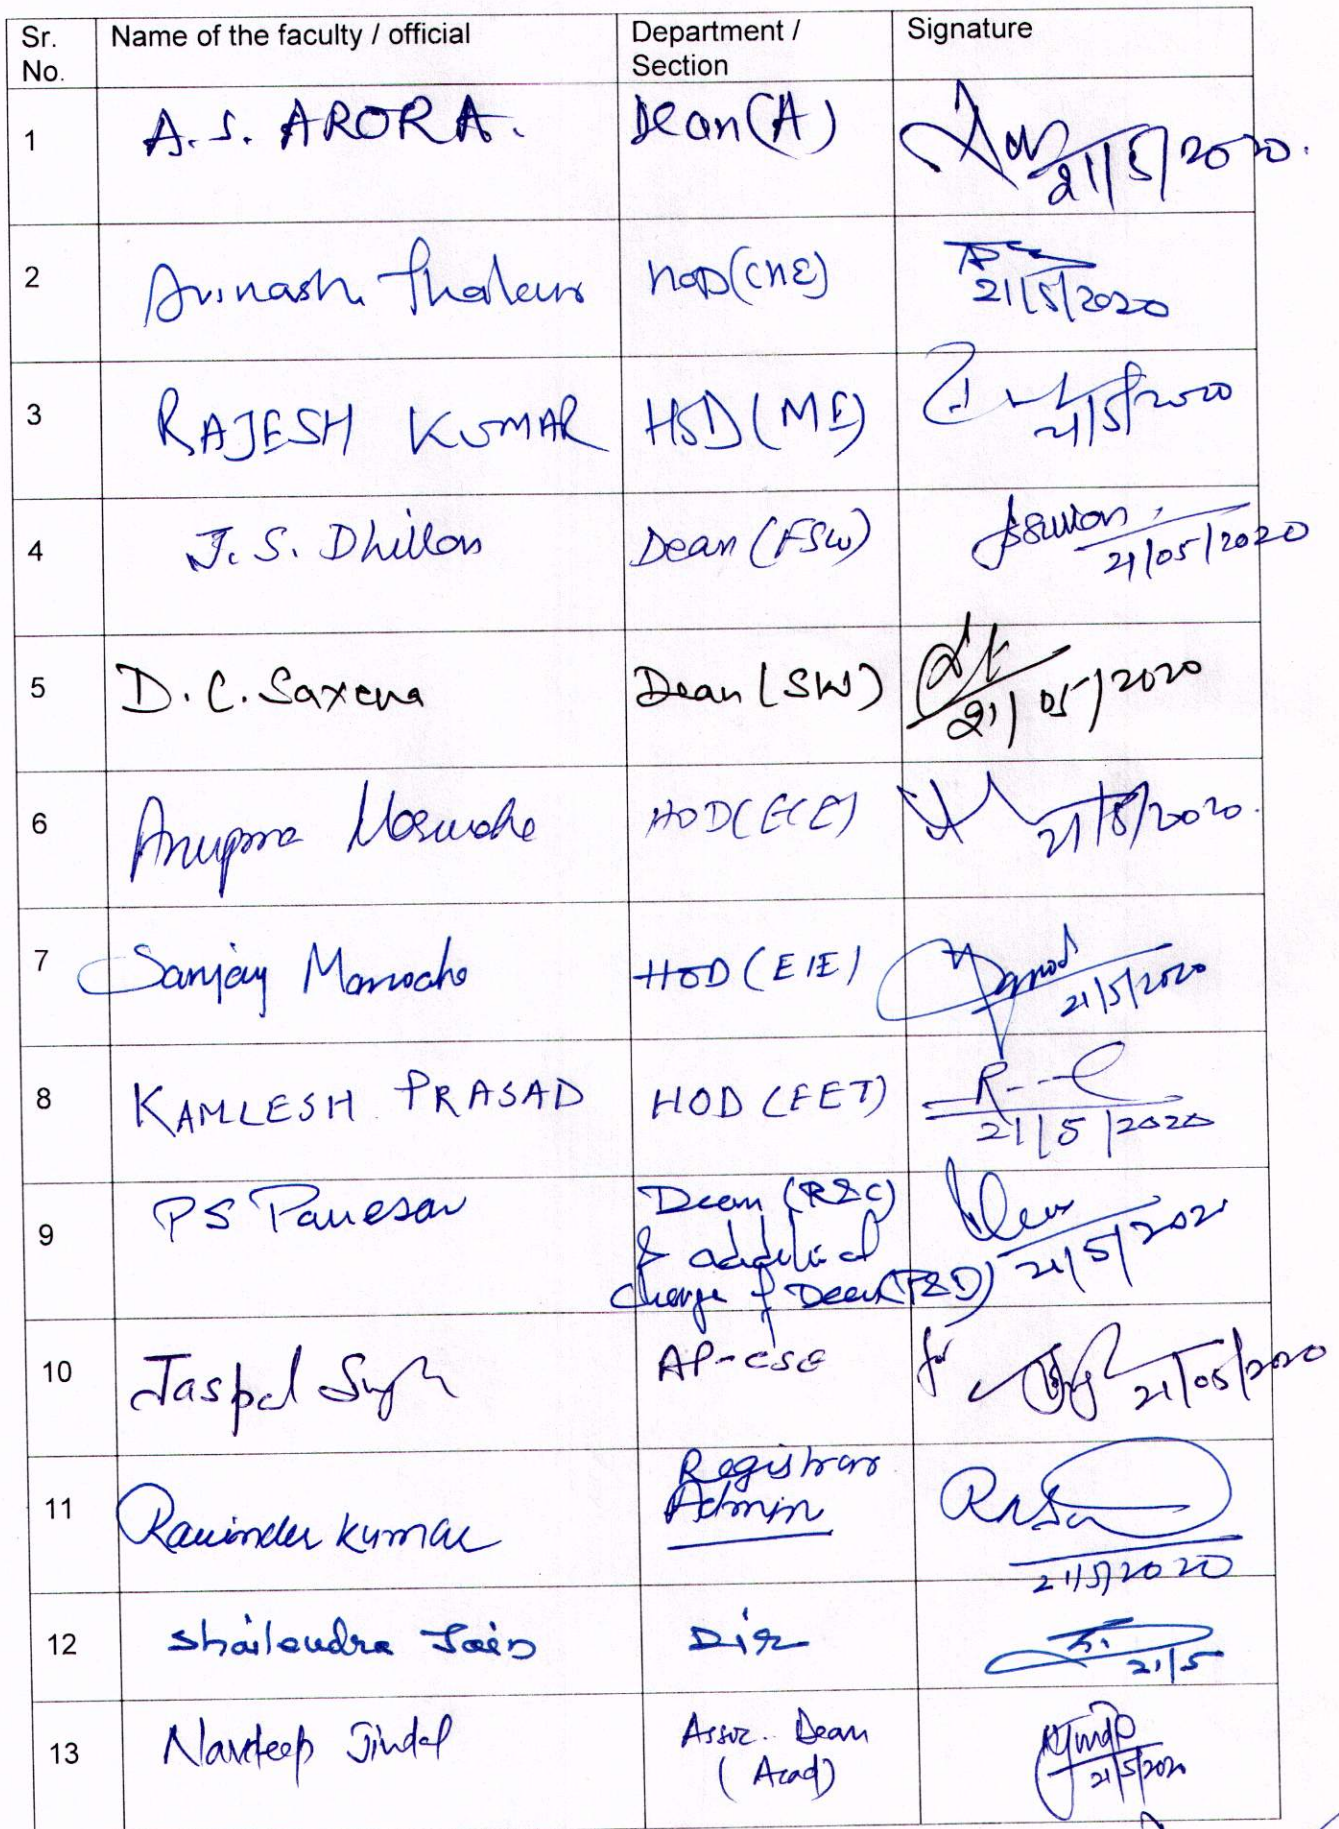 Sr. No. Name of the faculty / official Department / Section Signature
1 A.S. ARORA. Dean(A) 21/5/2020.
2 Avinash Thakur HOD(CHE) 21/5/2020
3 RAJESH KUMAR HOD(ME) 21/5/2020
4 J.S. Dhillon Dean (FSW) 21/05/2020
5 D.C. Saxena Dean (SW) 21/05/2020
6 Anupma HOD(ECE) 21/5/2020.
7 Sanjay Marwaha HOD (EIE) 21/5/2020
8 KAMLESH PRASAD HOD (FET) 21/5/2020
9 PS Panesar Dean (R&C)
& additional
charge of Dean(P&D) 21/5/2020
10 Jaspal Singh AP-CSE for 21/05/2020
11 Ravinder Kumar Registrar
Admin 21/5/2020
12 Shailendra Jain Dir 21/5
13 Navdeep Jindal Assoc. Dean
(Acad) 21/5/2020